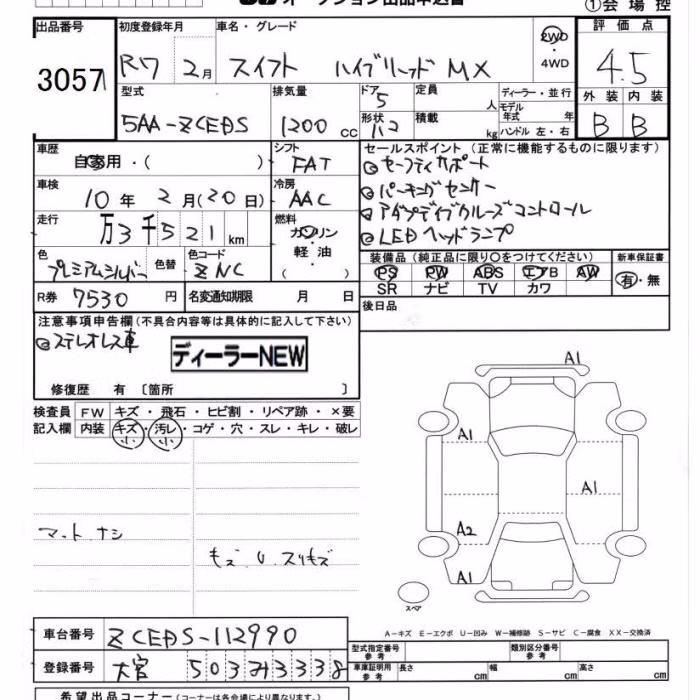 オークション出品申込書
①会場控
出品番号 初度登録年月 車名・グレード 評価点
3057 R7 2月 スイフト ハイブリッド MX 2WD・4WD 4.5
型式 排気量 ドア 定員 ディーラー・並行 外装 内装
5 人 モデル年式 年
5AA-ZCEDS 1200cc 形状 積載 kg ハンドル 左・右 B B
車歴 シフト セールスポイント(正常に機能するものに限ります)
自家用・( ) FAT ◎セーフティサポート
車検 冷房 ◎パーキングセンサー
10年2月(20日) AAC ◎アダプティブクルーズコントロール
走行 燃料 ◎LEDヘッドランプ
万3千521km ガソリン・軽油
色 色替 色コード 装備品(純正品に限り○をつけてください) 新車保証書
プレミアムシルバー ZNC PS PW ABS エアB AW 有・無
SR ナビ TV カワ
R券 7530円 名変通知期限 月 日 後日品
注意事項申告欄(不具合内容等は具体的に記入して下さい)
◎ステレオレス車
ディーラーNEW
修復歴 有〔箇所 〕
検査員 FW キズ・飛石・ヒビ割・リペア跡・×要
記入欄 内装 キズ・汚レ・コゲ・穴・スレ・キレ・破レ
小 小
A1
A1
A1
マットナシ A2
モズ U スリキズ
A1
スペア
A-キズ E-エクボ U-凹み W-補修跡 S-サビ C-腐食 XX-交換済
車台番号 ZCEDS-112990
型式指定番号 参考 類別区分番号 参考
登録番号 大宮 503 3338
車庫証明用 参考 長さ cm 幅 cm 高さ cm
希望出品コーナー(コーナーは各会場により異なります。)